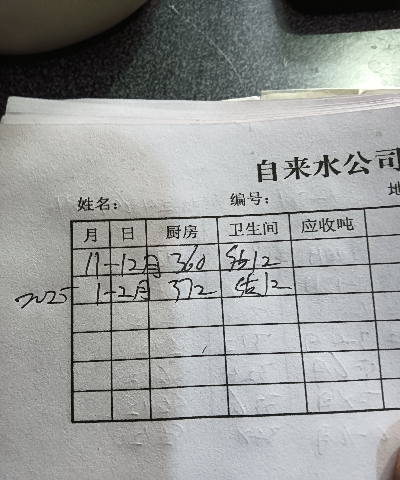 自来水公司
姓名： 编号： 地
月 日 厨房 卫生间 应收吨
11-12月 360 12
2025 1-2月 372 12